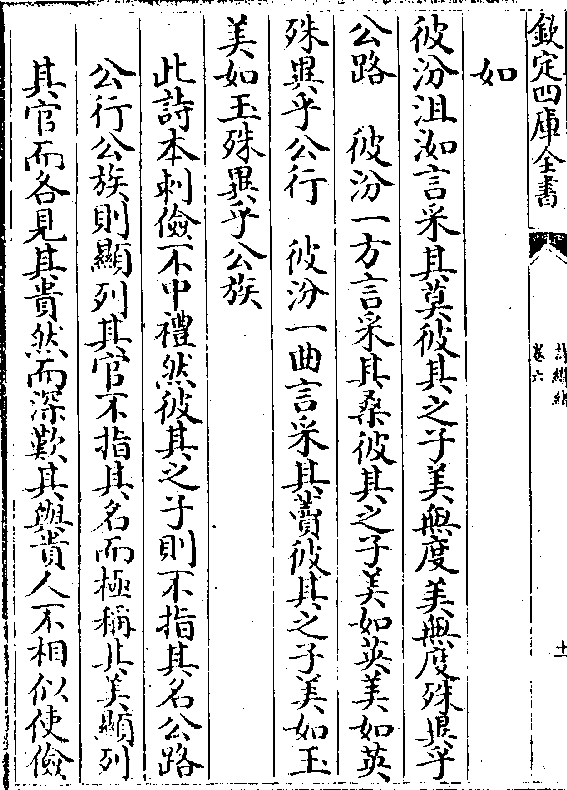 欽定四庫全書
卷六
十
如
彼汾沮洳言采其莫彼其之子美無度美無度殊異乎
公路　彼汾一方言采其桑彼其之子美如英美如英
殊異乎公行　彼汾一曲言采其藚彼其之子美如玉
美如玉殊異乎公族
此詩本刺儉不中禮然彼其之子則不指其名公路
公行公族則顯列其官不指其名而極稱其美顯列
其官而各見其貴然而深歎其與貴人不相似使儉